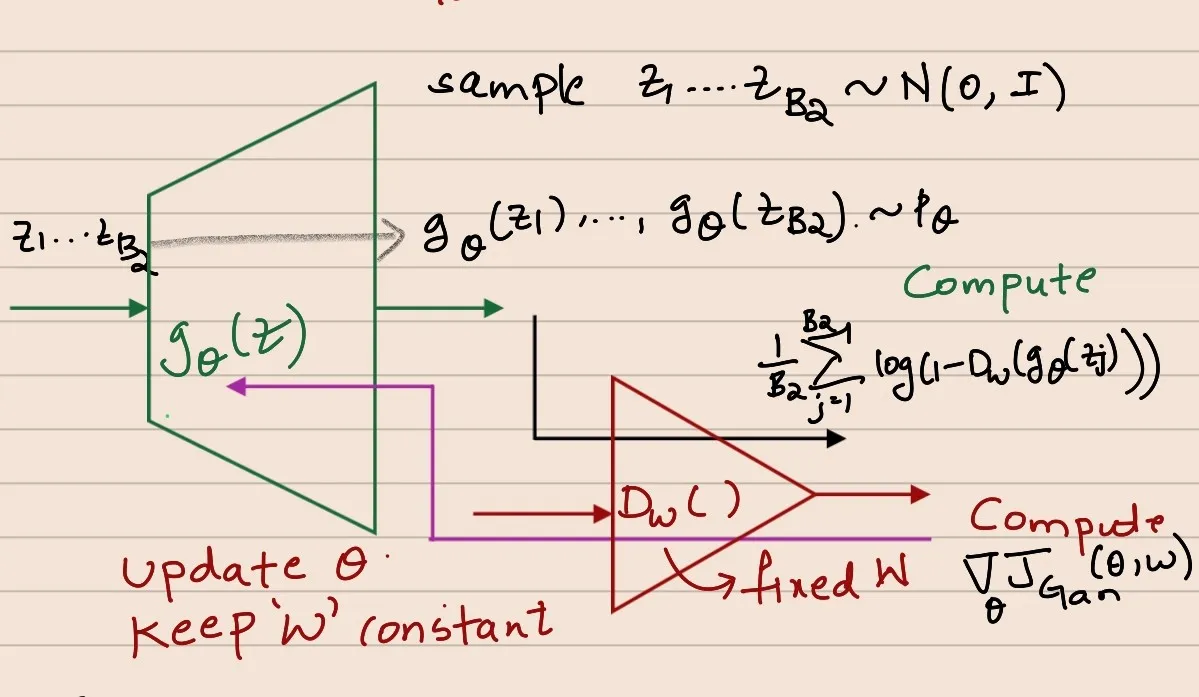 sample z₁....z_B₂ ~ N(0, I)
z₁...z_B₂
g_θ(z₁),..., g_θ(z_B₂). ~ P_θ
Compute
g_θ(z)
1/B₂ Σ_{j=1}^{B₂} log(1-D_w(g_θ(zj)))
D_w( )
Compute
∇_θ J_Gan(θ,w)
fixed W
Update θ.
Keep 'W' constant